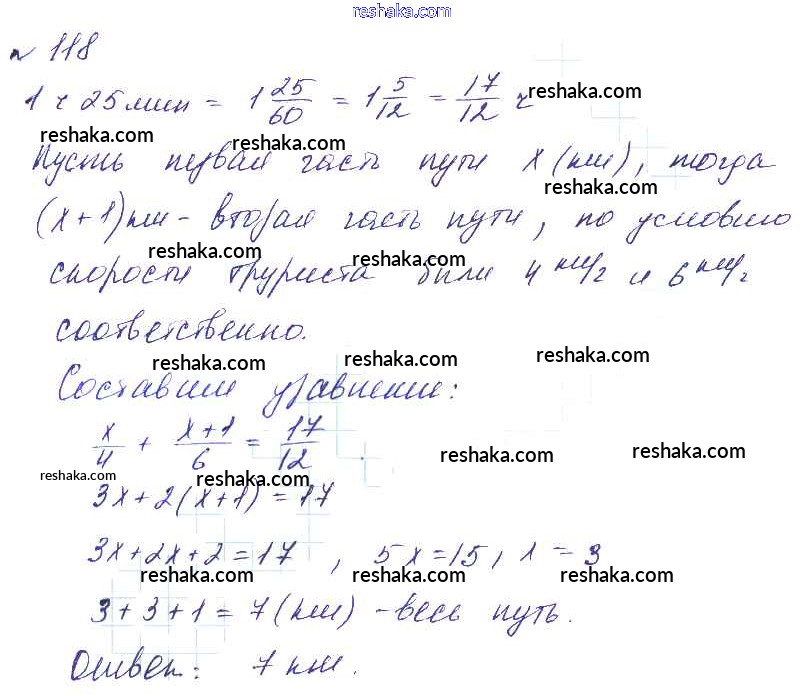 reshaka.com
№ 118
1 ч 25 мин = 1 25/60 = 1 5/12 = 17/12 ч
reshaka.com
reshaka.com reshaka.com
Пусть первая часть пути x (км), тогда
reshaka.com
(x+1) км - вторая часть пути, по условию
reshaka.com reshaka.com
скорости труриста были 4 км/ч и 6 км/ч
соответственно.
reshaka.com reshaka.com reshaka.com
Составим уравнение:
x/4 + x+1/6 = 17/12
reshaka.com reshaka.com reshaka.com
reshaka.com
3x+2(x+1)=17
3x+2x+2=17, 5x=15, x=3
reshaka.com reshaka.com reshaka.com
3+3+1=7(км) - весь путь.
reshaka.com reshaka.com
Ответ: 7 км.